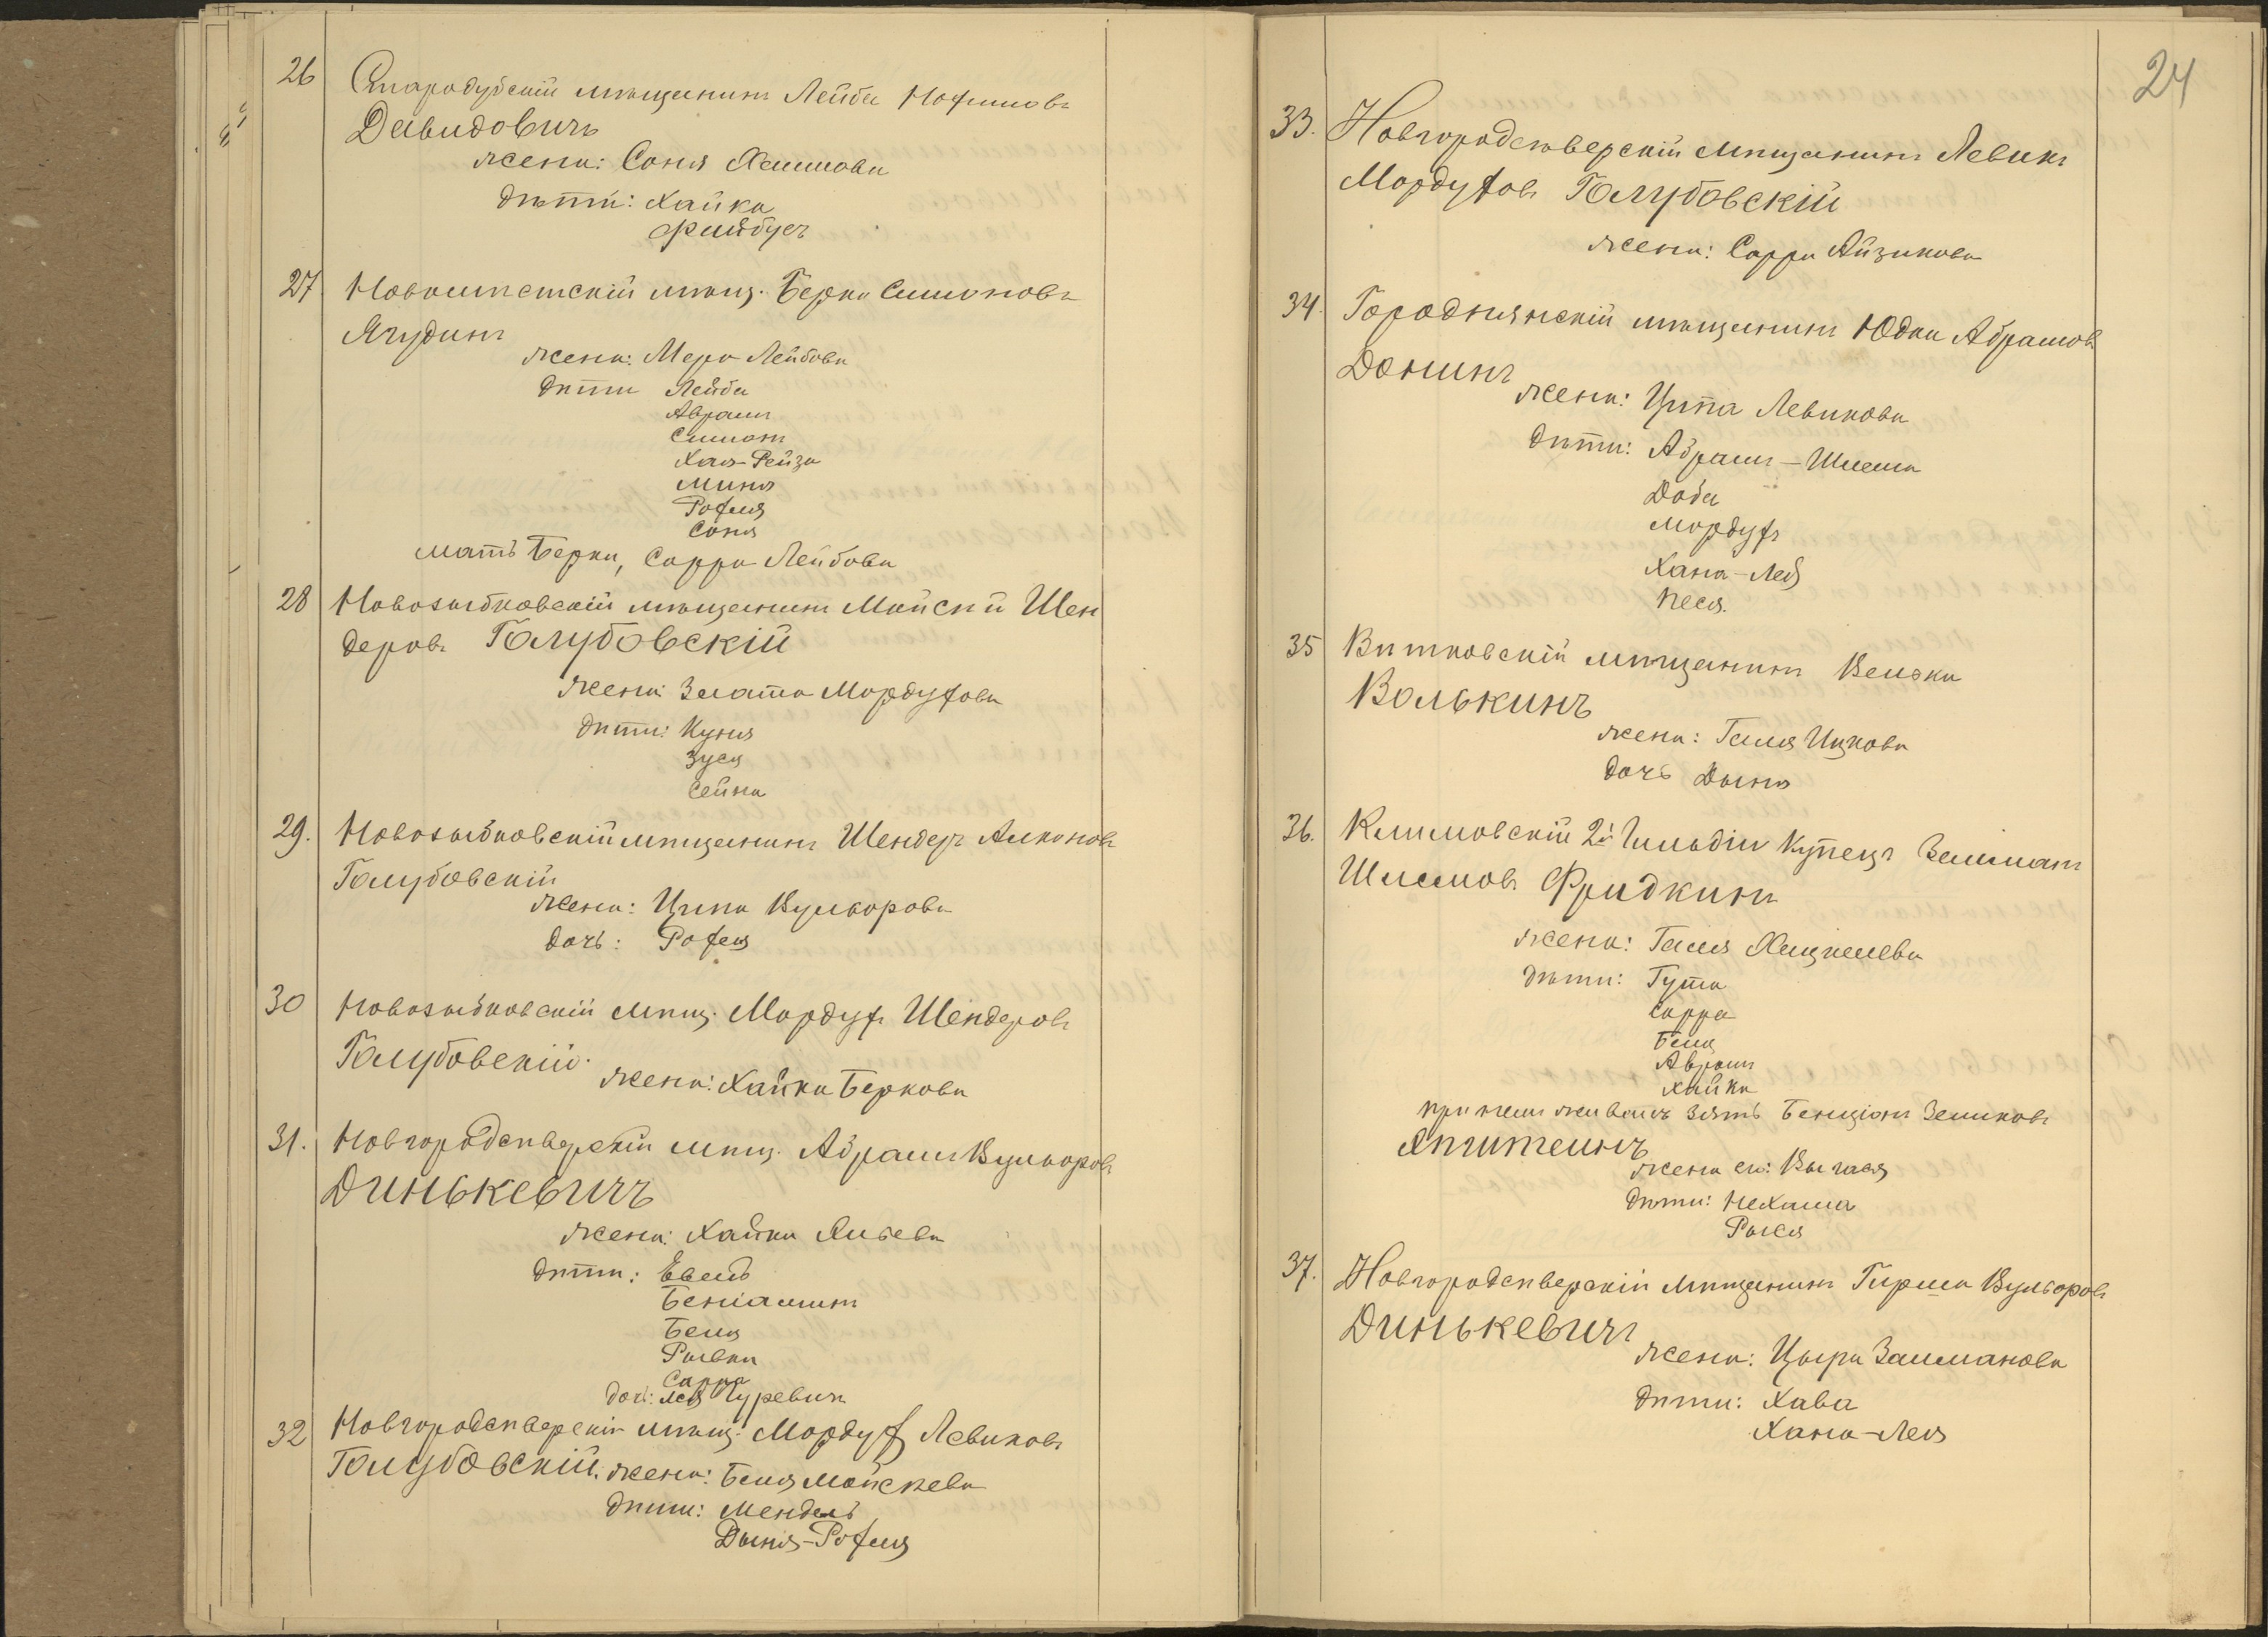 26 Стародубскій мѣщанинъ Лейба Нохимовъ
Давидовичъ
жена: Соня Хаимова
дѣти: Хайка
Файбусъ
27 Новомѣстскій мѣщ. Берка Симоновъ
Ягудинъ
жена: Мера Лейбова
дѣти Лейба
Авраамъ
Симонъ
Хая-Рейза
Миня
Рохля
Соня
мать Берки, Сарра Лейбова
28 Новозыбковскій мѣщанинъ Мойсей Шен
деровъ Голубовскій
жена: Злата Мордухова
дѣти: Куня
Зуся
Сейна
29. Новозыбковскій мѣщанинъ Шендеръ Алконовъ
Голубовскій
жена: Ципа Вульфова
дочь: Рохля
30 Новозыбковскій мѣщ. Мордухъ Шендеровъ
Голубовскій.
жена: Хайка Беркова
31. Новгородсѣверскій мѣщ. Абрамъ Вульфовъ
Динькевичъ
жена: Хайка
дѣти:
Беніаминъ
Беля
Рывка
Сарра
дочь: Лея Гуревичъ
32 Новгородсѣверскій мѣщ. Мордухъ Левиковъ
Голубовскій. жена: Беля Мойсеева
дѣти: Мендель
Дыня-Рохля
24
33. Новгородсѣверскій мѣщанинъ Левикъ
Мордуховъ Голубовскій
жена: Сарра Айзикова
34. Городнянскій мѣщанинъ Юдка Абрамовъ
Донинъ
жена: Ципа Левикова
дѣти: Абрамъ-Шлема
Доба
Мордухъ
Хана-Лея
Песя.
35 Вѣтковскій мѣщанинъ Велька
Волькинъ
жена: Галя Ицкова
дочь Дыня
36. Климовскій 2й Гильдіи Купецъ Залманъ
Шлемовъ Фридкинъ
жена: Галя Хацкелева
дѣти: Гута
Сарра
Беля
Авраамъ
Хайка
при немъ живетъ зять Бенціонъ Зеликовъ
Эпштейнъ
жена его:
дѣти: Нехама
Рыся
37. Новгородсѣверскій мѣщанинъ Гирша Вульфовъ
Динькевичъ
жена: Цыра Залманова
дѣти: Хава
Хана-Лея